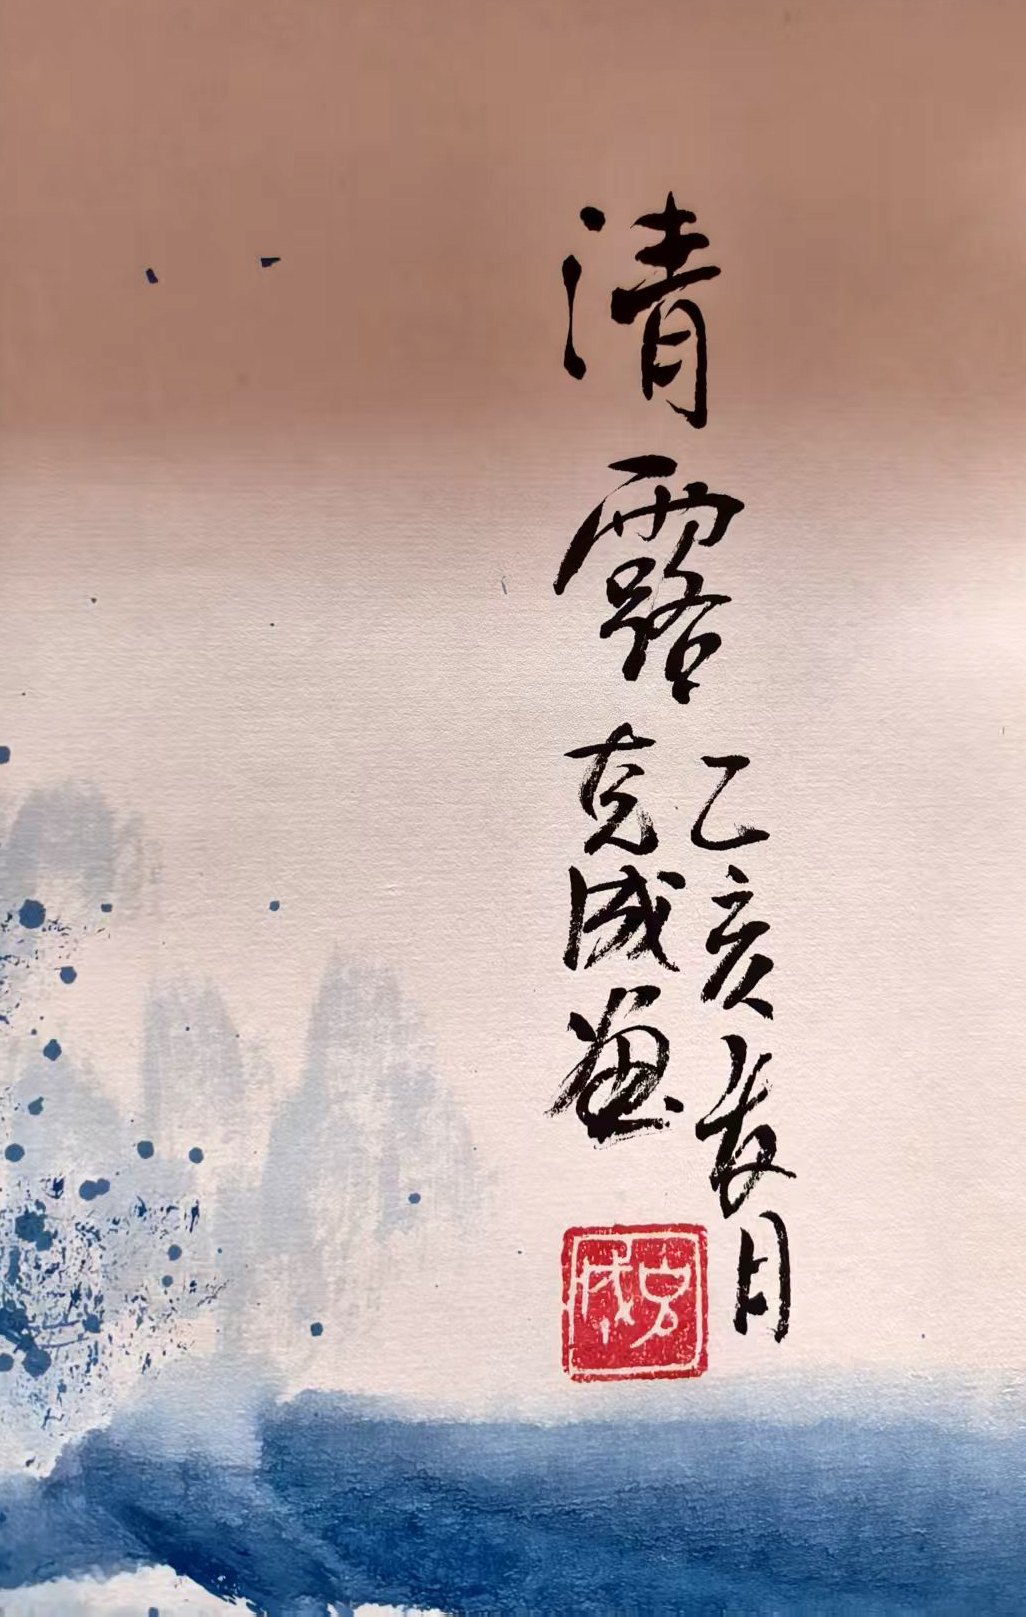 清露
乙亥月
克成画
克成